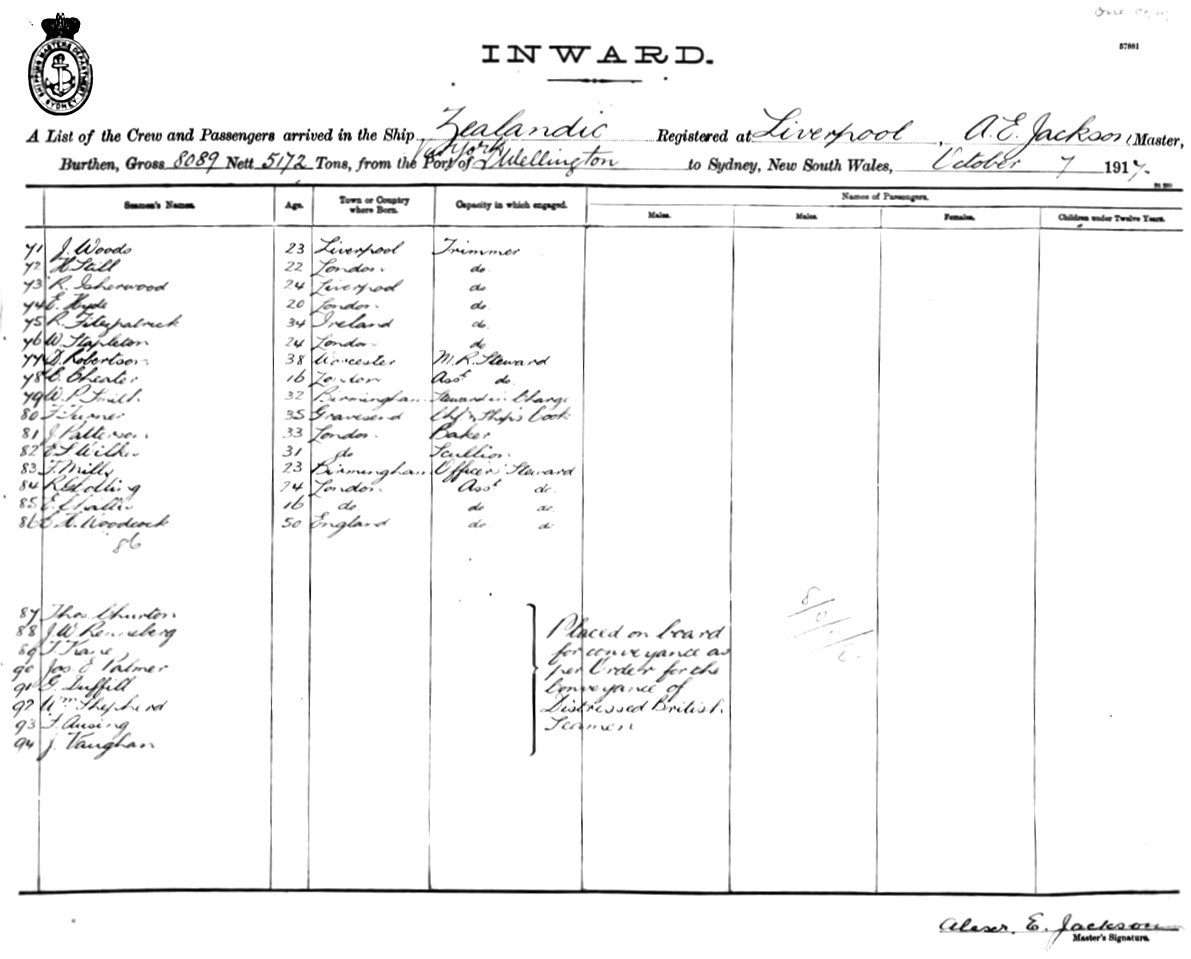 SHIPPING MASTERS DEPARTMENT SYDNEY
57881
INWARD.
A List of the Crew and Passengers arrived in the Ship Zealandic Registered at Liverpool, A. E. Jackson, Master,
Burthen, Gross 8089 Nett 5172 Tons, from the Port of York & Wellington to Sydney, New South Wales, October 7 1917.
Seamen's Names. Age. Town or Country where Born. Capacity in which engaged. Names of Passengers.
Males. Males. Females. Children under Twelve Years.
71 J. Woods 23 Liverpool Trimmer
72 H. Still 22 London do
73 R. Isherwood 24 Liverpool do
74 E. Hyde 20 London do
75 R. Fitzpatrick 34 Ireland do
76 W. Stapleton 24 London do
77 D. Robertson 38 Worcester M. R. Steward
78 C. Cheater 16 London Asst do.
79 W. P. Smith 32 Birmingham Steward in Charge
80 F. Turner 35 Gravesend Chf & Ship's Cook
81 J. Patterson 33 London Baker
82 31 do Scullion
83 F. Mills 23 Birmingham Officers' Steward
84 24 London Asst do.
85 16 do do do.
86 Woodcock 50 England do do
86
87 Thos Churton
88 J. W. Renneberg
89 Kane
90 Jas. E. Palmer
91 G. Duffill
92 Wm Shepherd
93 F. Ausing
94 J. Vaughan
Placed on board
for conveyance as
per Order for the
Conveyance of
Distressed British
Seamen
Alexr. E. Jackson
Master's Signature.